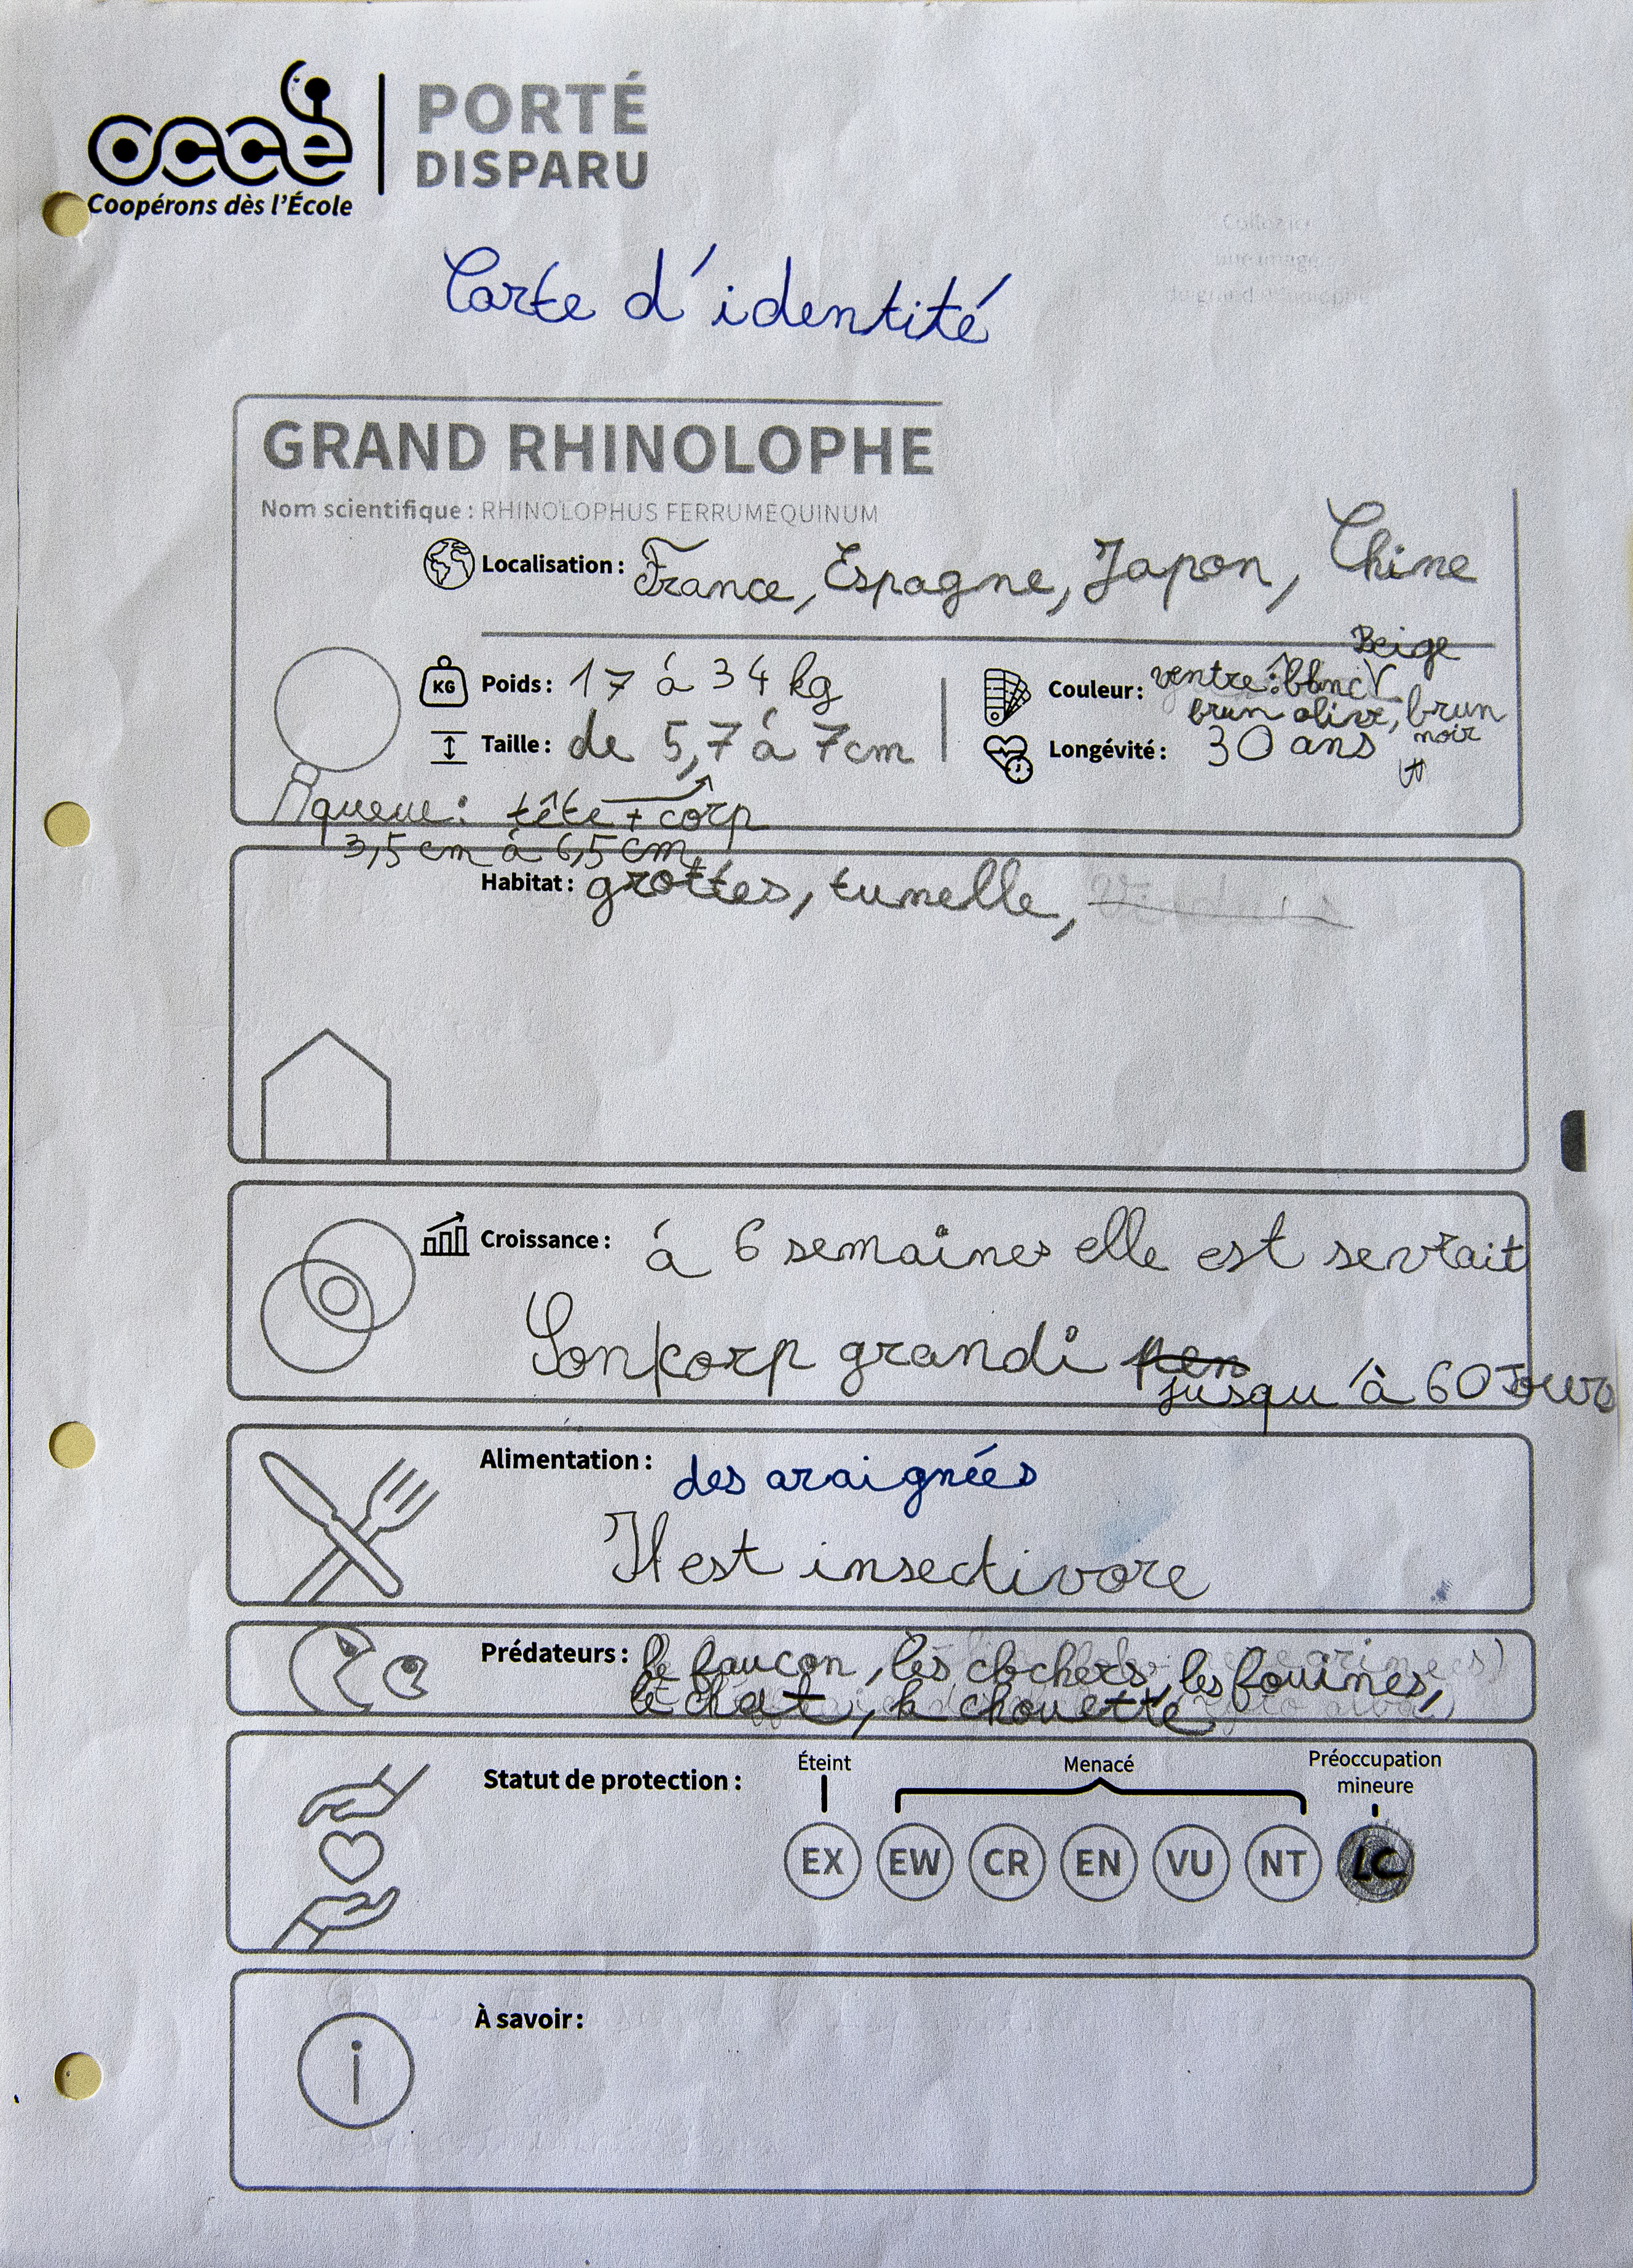 occe
Coopérons dès l'École
PORTÉ
DISPARU
Collez ici
une image
du grand rhinolophe
Carte d'identité
GRAND RHINOLOPHE
Nom scientifique : RHINOLOPHUS FERRUMEQUINUM
Localisation : France, Espagne, Japon, Chine
KG Poids : 17 à 34 kg
Taille : de 5,7 à 7cm
Beige
Couleur : ventre : blanc
brun olive, brun
noir
Longévité : 30 ans
queue : tête + corp
3,5 cm à 6,5 cm
Habitat : grottes, tunnelle,
Croissance : à 6 semaines elle est sevrait
Son corp grandi pen
jusqu'à 60 Jours
Alimentation : des araignées
Il est insectivore
Prédateurs : le faucon, les clochers, les fouines,
le chat, la chouette
Statut de protection :
Éteint
Menacé
Préoccupation
mineure
EX EW CR EN VU NT LC
À savoir :
i